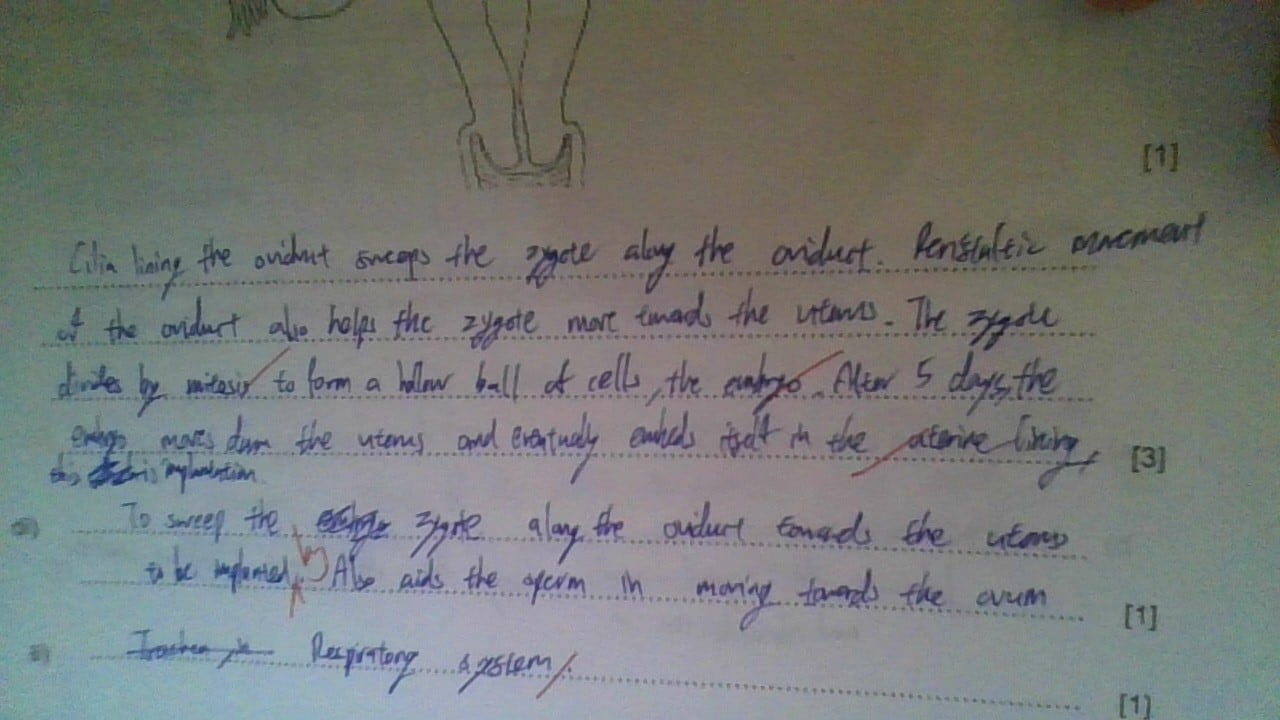 [1]
Cilia lining the oviduct sweeps the zygote along the oviduct. Peristaltic movement
of the oviduct also helps the zygote move towards the uterus. The zygote
divides by mitosis to form a hollow ball of cells, the embryo. After 5 days, the
embryo moves down the uterus and eventually embeds itself in the uterine lining, [3]
this is implantation.
To sweep the zygote along the oviduct towards the uterus
to be implanted. Also aids the sperm in moving towards the ovum [1]
Respiratory system. [1]